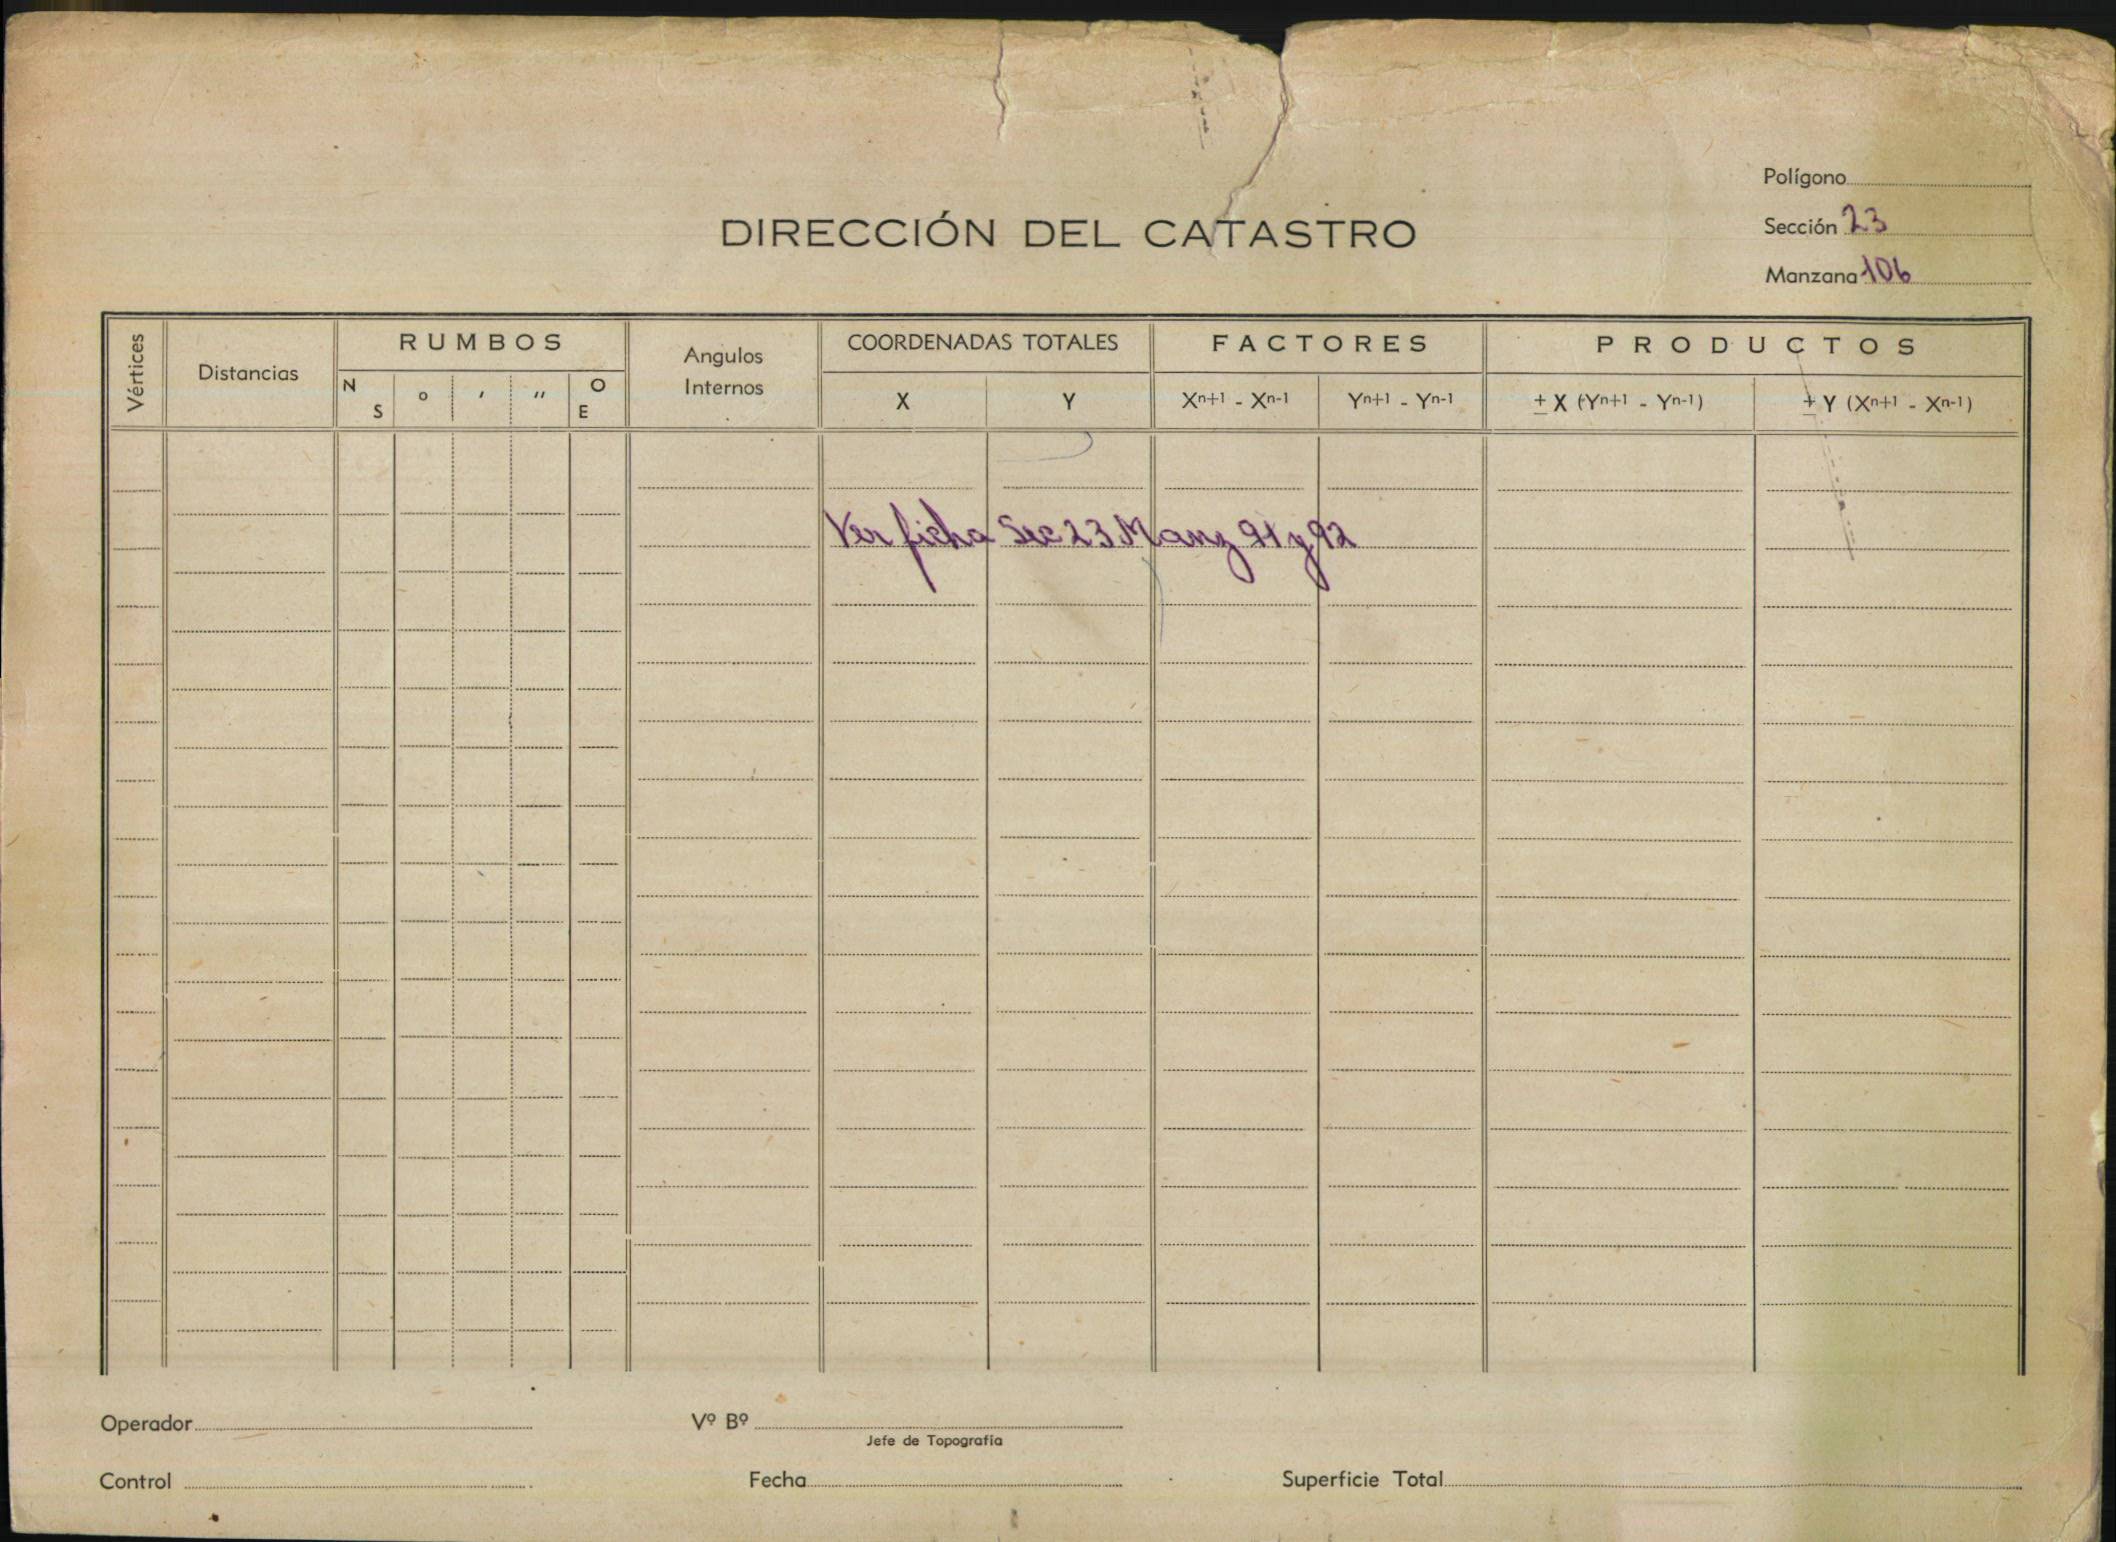 Polígono
DIRECCIÓN DEL CATASTRO
Sección 23
Manzana 106
Vértices
Distancias
RUMBOS
N S
o
′
″
O E
Angulos Internos
COORDENADAS TOTALES
X
Y
FACTORES
Xn+1 - Xn-1
Yn+1 - Yn-1
PRODUCTOS
± X (Yn+1 - Yn-1)
± Y (Xn+1 - Xn-1)
Ver ficha Sec 23 Manz 91 y 92
Operador
Vº Bº
Jefe de Topografía
Control
Fecha
Superficie Total